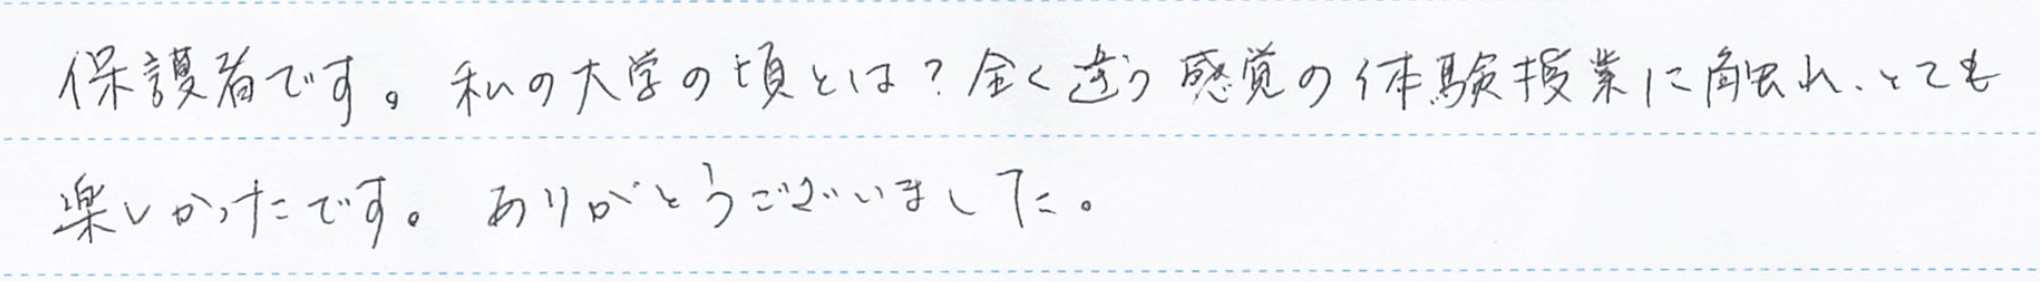 保護者です。私の大学の頃とは?全く違う感覚の体験授業に触れ、とても
楽しかったです。ありがとうございました。